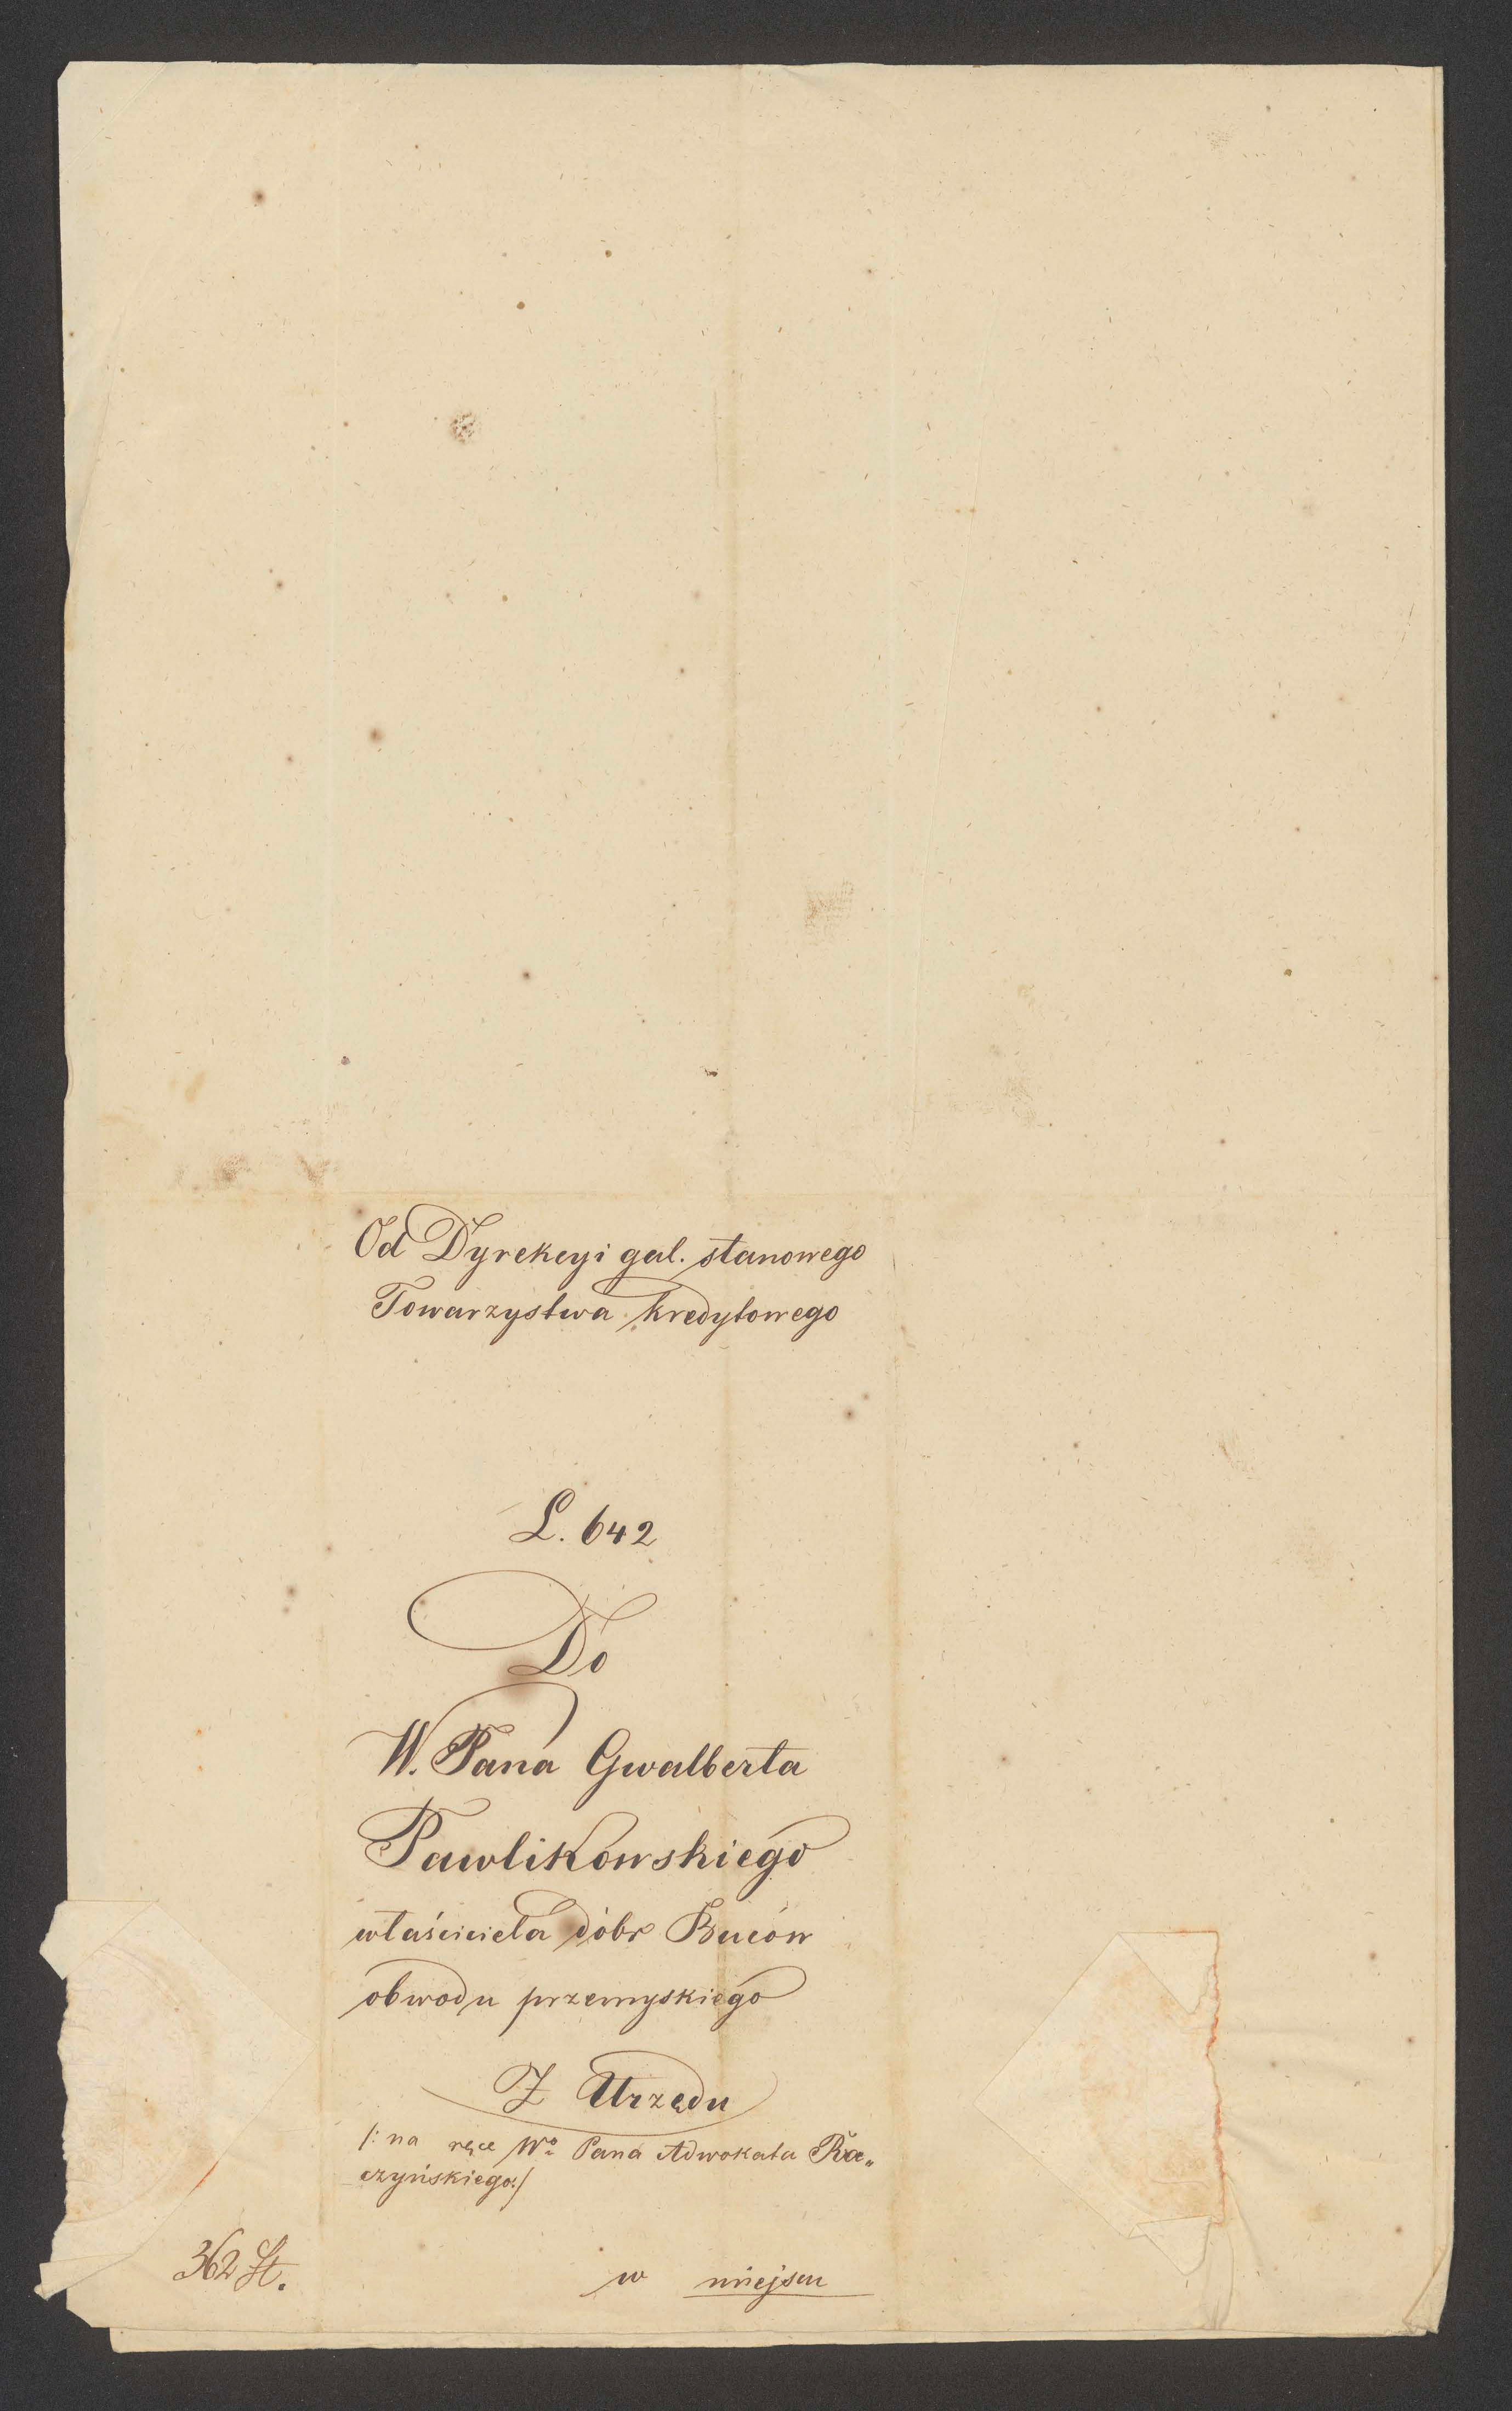 Od Dyrekcyi gal. stanowego
Towarzystwa kredytowego
L. 642
Do
W. Pana Gwalberta
Pawlikowskiego
właściciela dóbr Buców
obwodu przemyskiego
Z Urzędu
/: na ręce Wo Pana Adwokata Ra„
czyńskiego :/
362
w miejscu